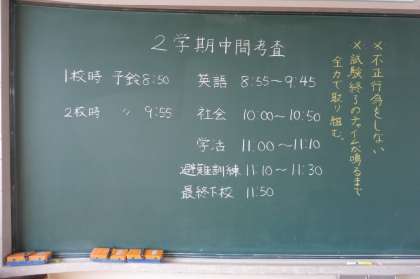 2学期中間考査
1校時 予鈴8:50 英語 8:55～9:45
2校時 〃 9:55 社会 10:00～10:50
学活 11:00～11:10
避難訓練 11:10～11:30
最終下校 11:50
×不正行為をしない
×試験終了のチャイムが鳴るまで
全力で取り組む。